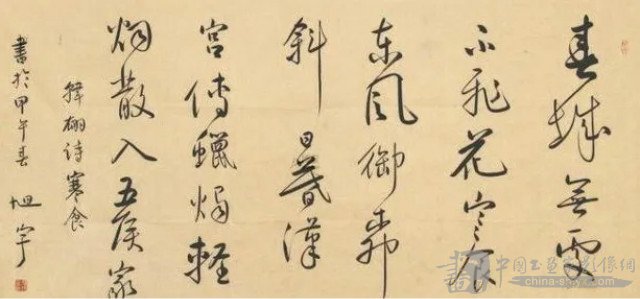 春城無處
不飛花寒食
東風御柳
斜日暮漢
宮傳蠟燭輕
烟散入五侯家
韓翃詩寒食
書於甲午春 旭宇